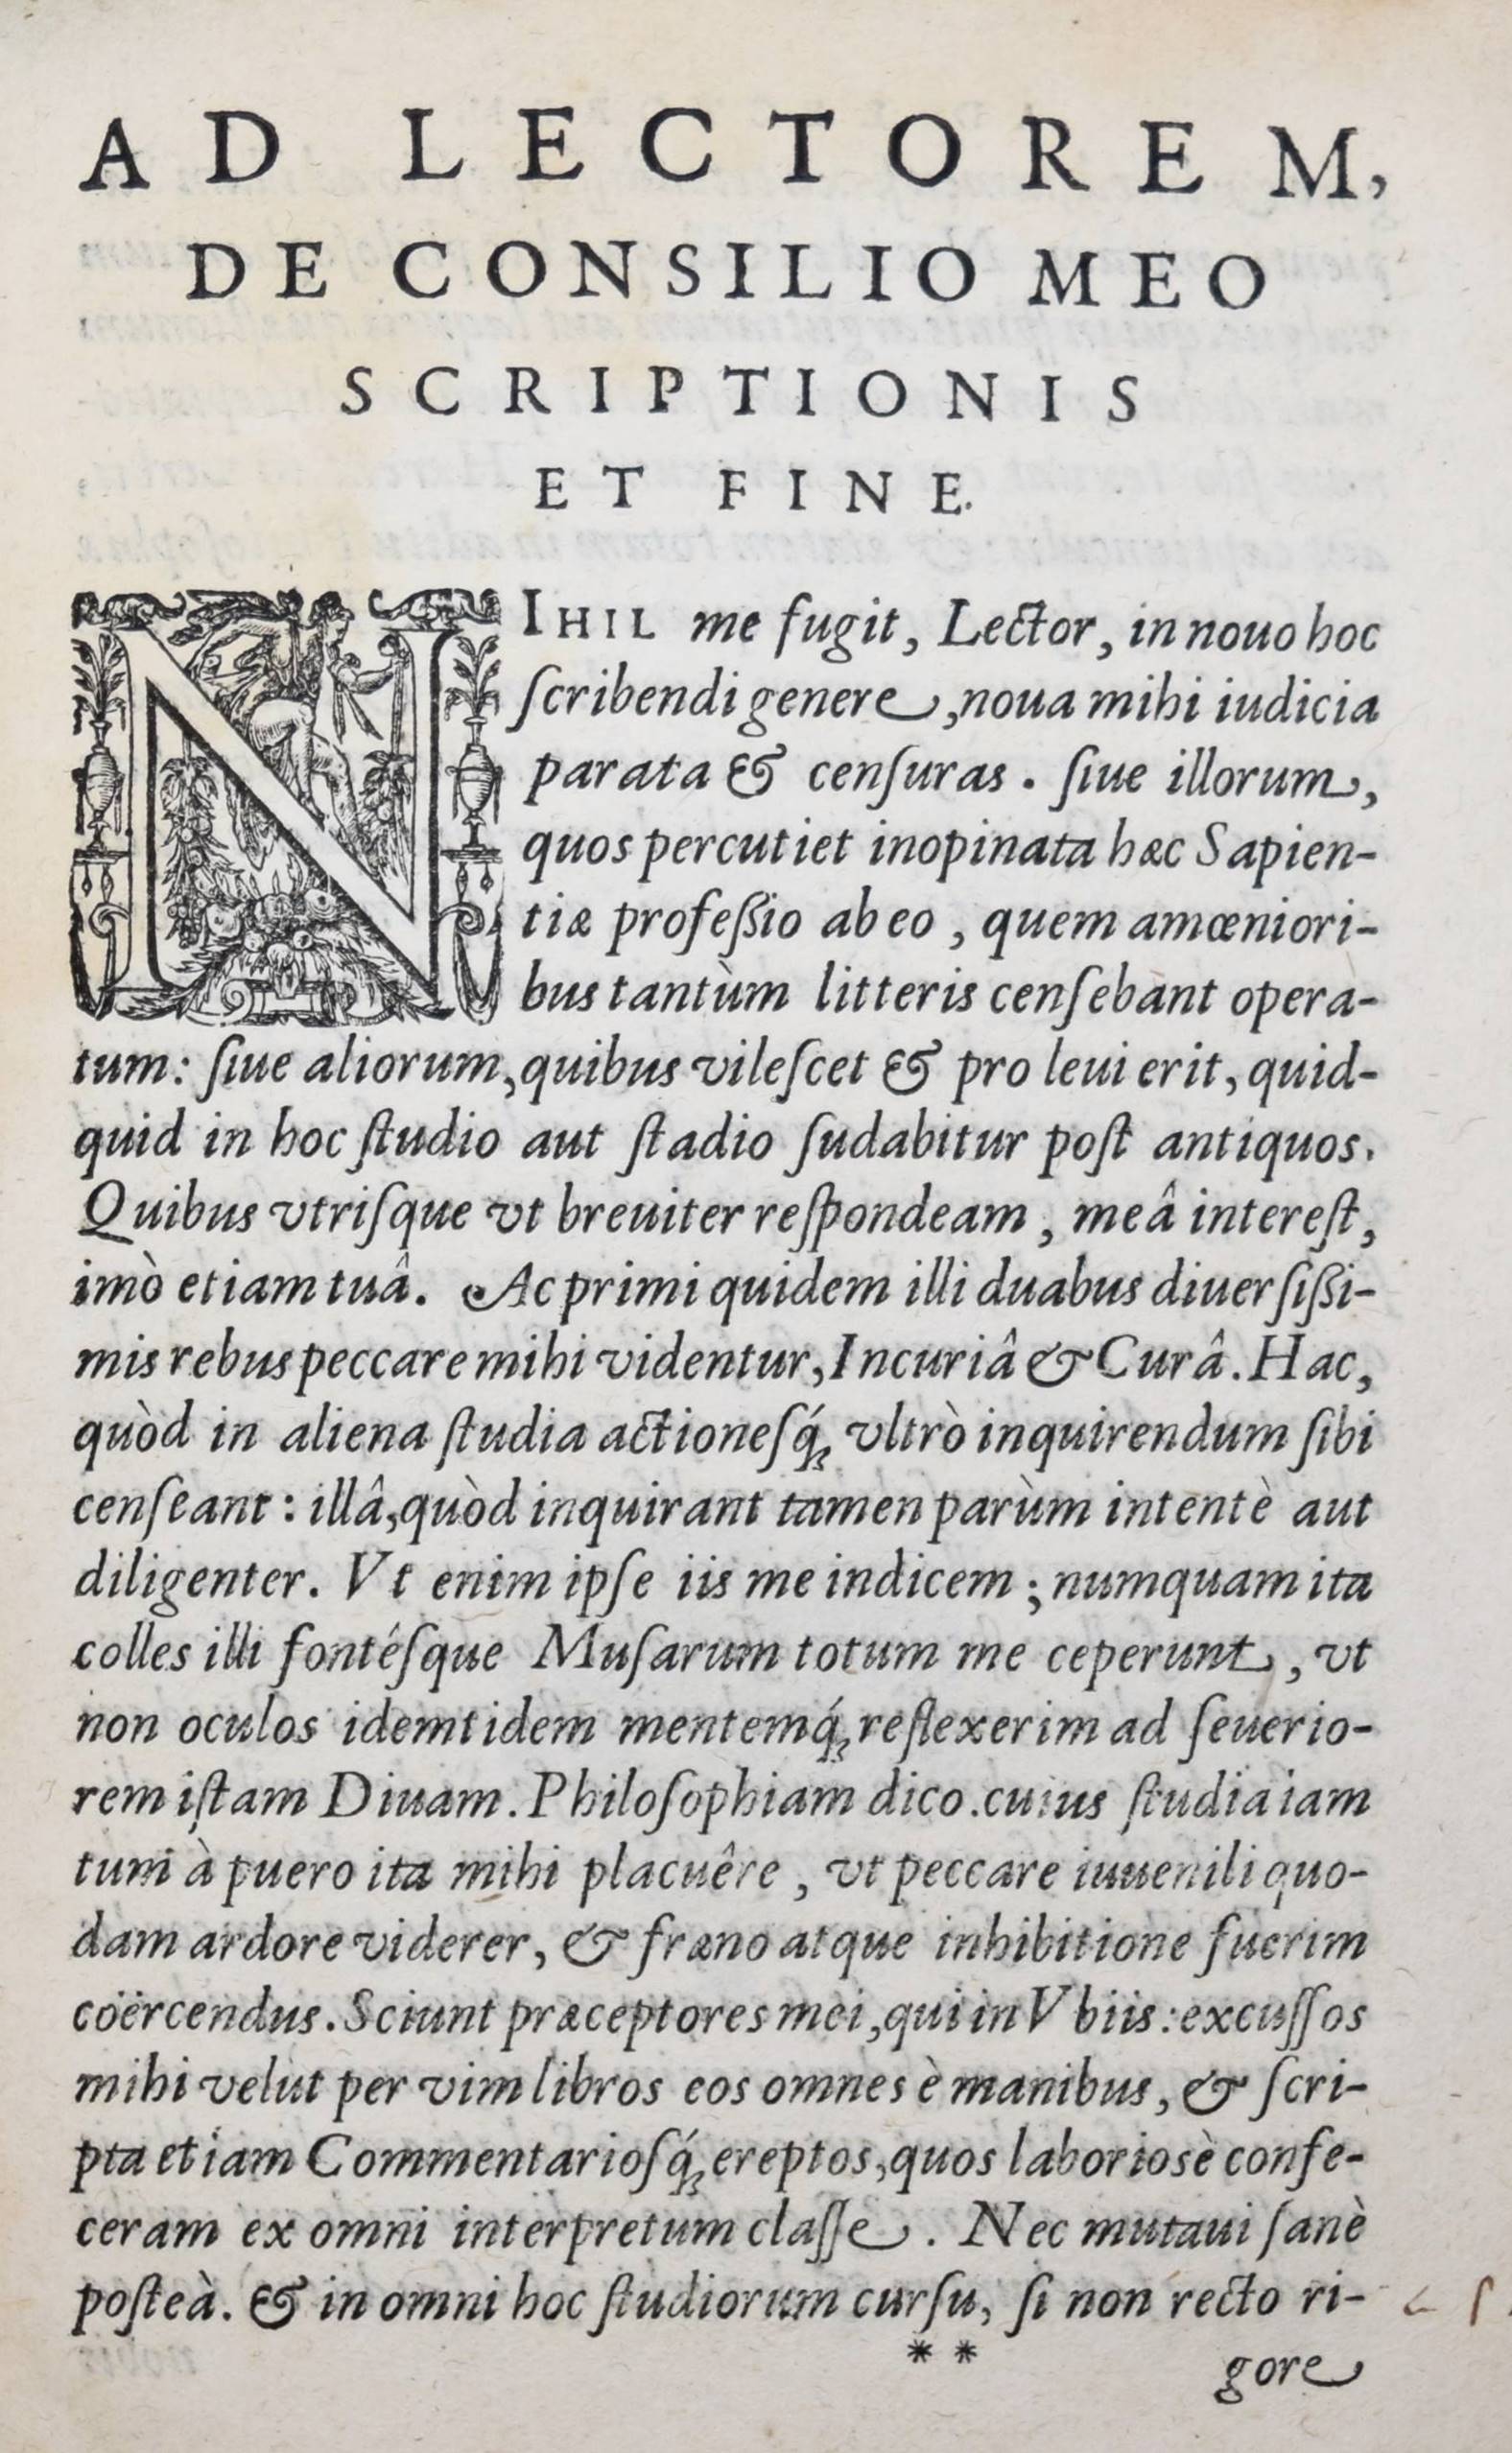 AD LECTOREM,
DE CONSILIO MEO
SCRIPTIONIS
ET FINE.
NIHIL me fugit, Lector, in nouo hoc
ſcribendi genere, noua mihi iudicia
parata & cenſuras. ſiue illorum,
quos percutiet inopinata hæc Sapien-
tiæ profeßio ab eo, quem amœniori-
bus tantùm litteris cenſebant opera-
tum: ſiue aliorum, quibus vileſcet & pro leui erit, quid-
quid in hoc ſtudio aut ſtadio ſudabitur poſt antiquos.
Quibus vtriſque vt breuiter reſpondeam, meâ intereſt,
imò etiam tuâ. Ac primi quidem illi duabus diuerſißi-
mis rebus peccare mihi videntur, Incuriâ & Curâ. Hac,
quòd in aliena ſtudia actioneſq́; vltrò inquirendum ſibi
cenſeant: illâ, quòd inquirant tamen parùm intentè aut
diligenter. Vt enim ipſe iis me indicem; numquam ita
colles illi fontéſque Muſarum totum me ceperunt, vt
non oculos idemtidem mentemq́; reflexerim ad ſeuerio-
rem iſtam Diuam. Philoſophiam dico. cuius ſtudia iam
tum à puero ita mihi placuêre, vt peccare iuuenili quo-
dam ardore viderer, & fræno atque inhibitione fuerim
coërcendus. Sciunt præceptores mei, qui in Vbiis: excuſſos
mihi velut per vim libros eos omnes è manibus, & ſcri-
pta etiam Commentarioſq́; ereptos, quos laboriosè confe-
ceram ex omni interpretum claſſe. Nec mutaui ſanè
poſteà. & in omni hoc ſtudiorum curſu, ſi non recto ri-
** gore